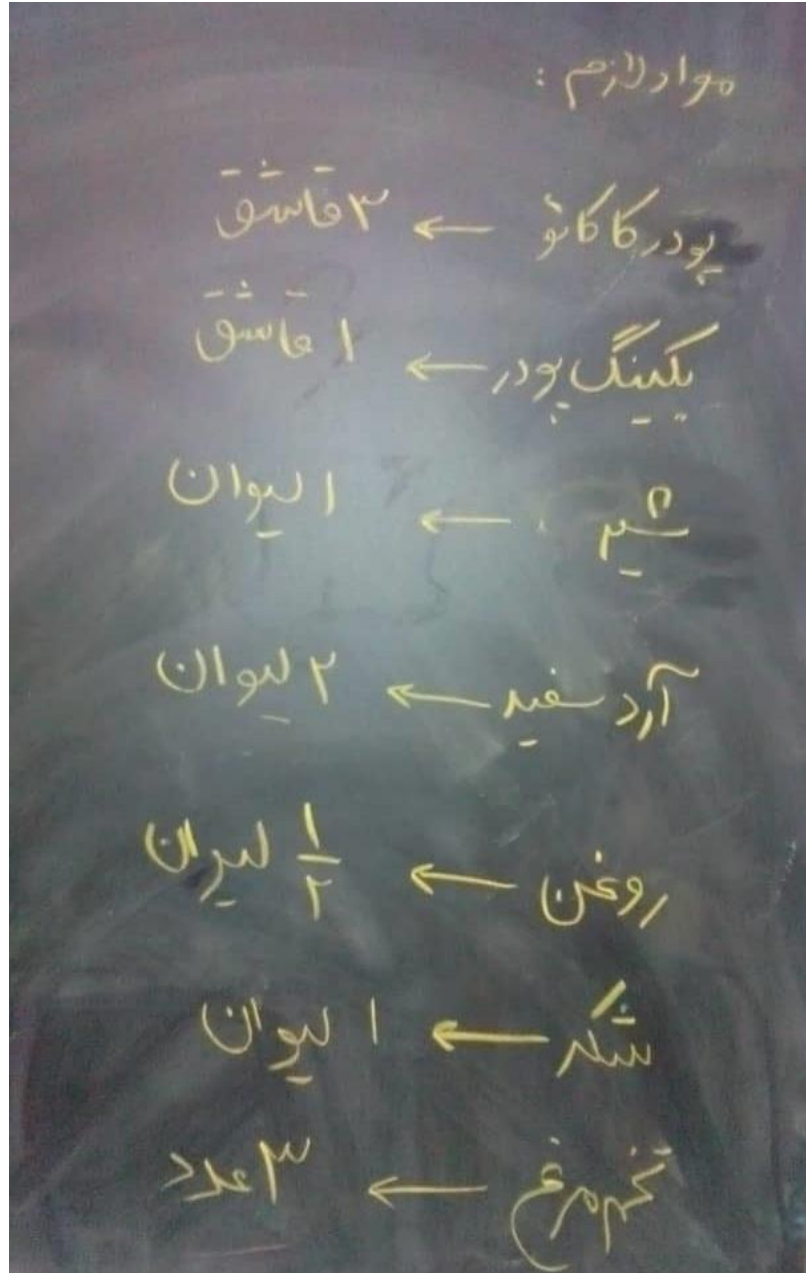 مواد لازم :
پودر کاکائو ← ۳ قاشق
بکینگ پودر ← ۱ قاشق
شیر ← ۱ لیوان
آرد سفید ← ۲ لیوان
روغن ← ۱/۲ لیوان
شکر ← ۱ لیوان
تخم مرغ ← ۳ عدد